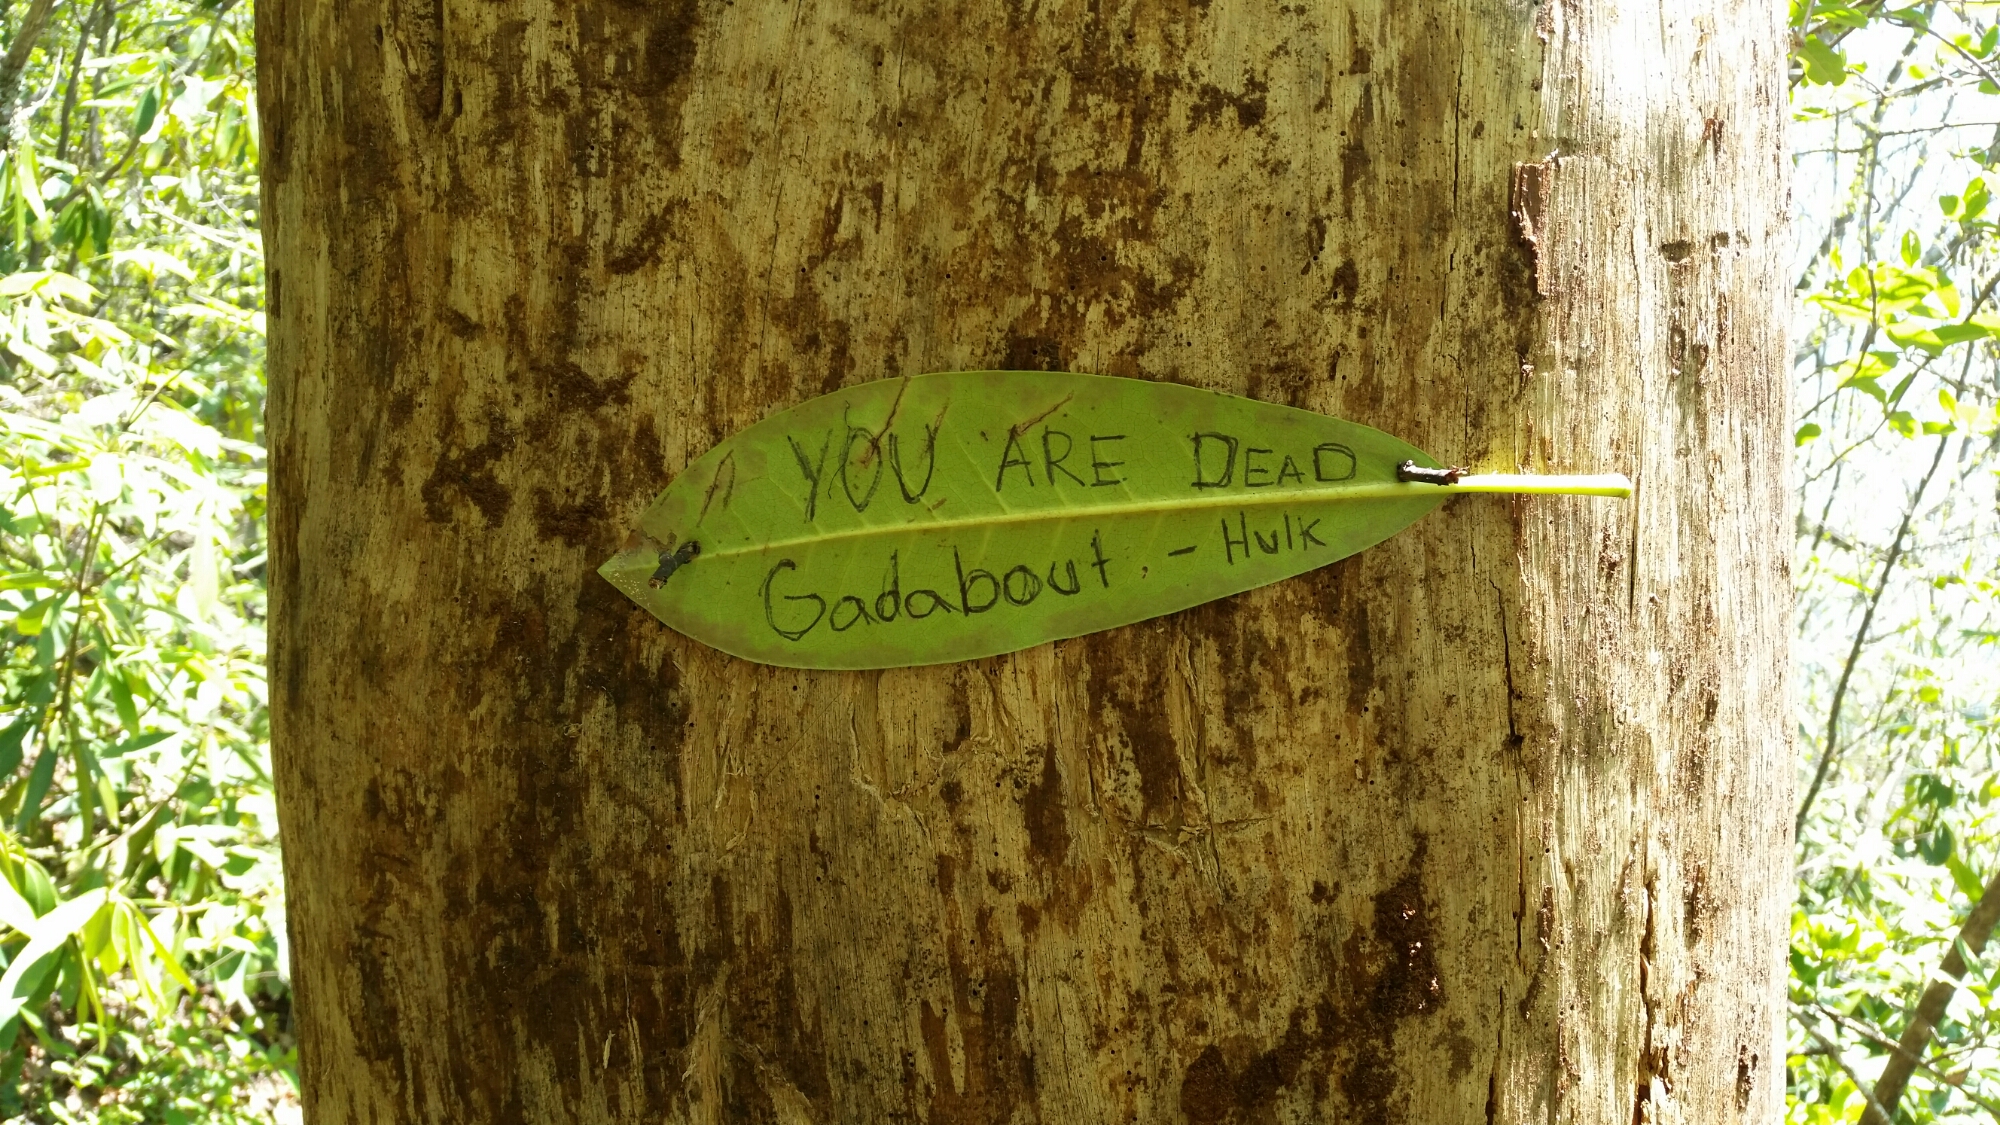 YOU ARE DEAD
Gadabout - Hulk